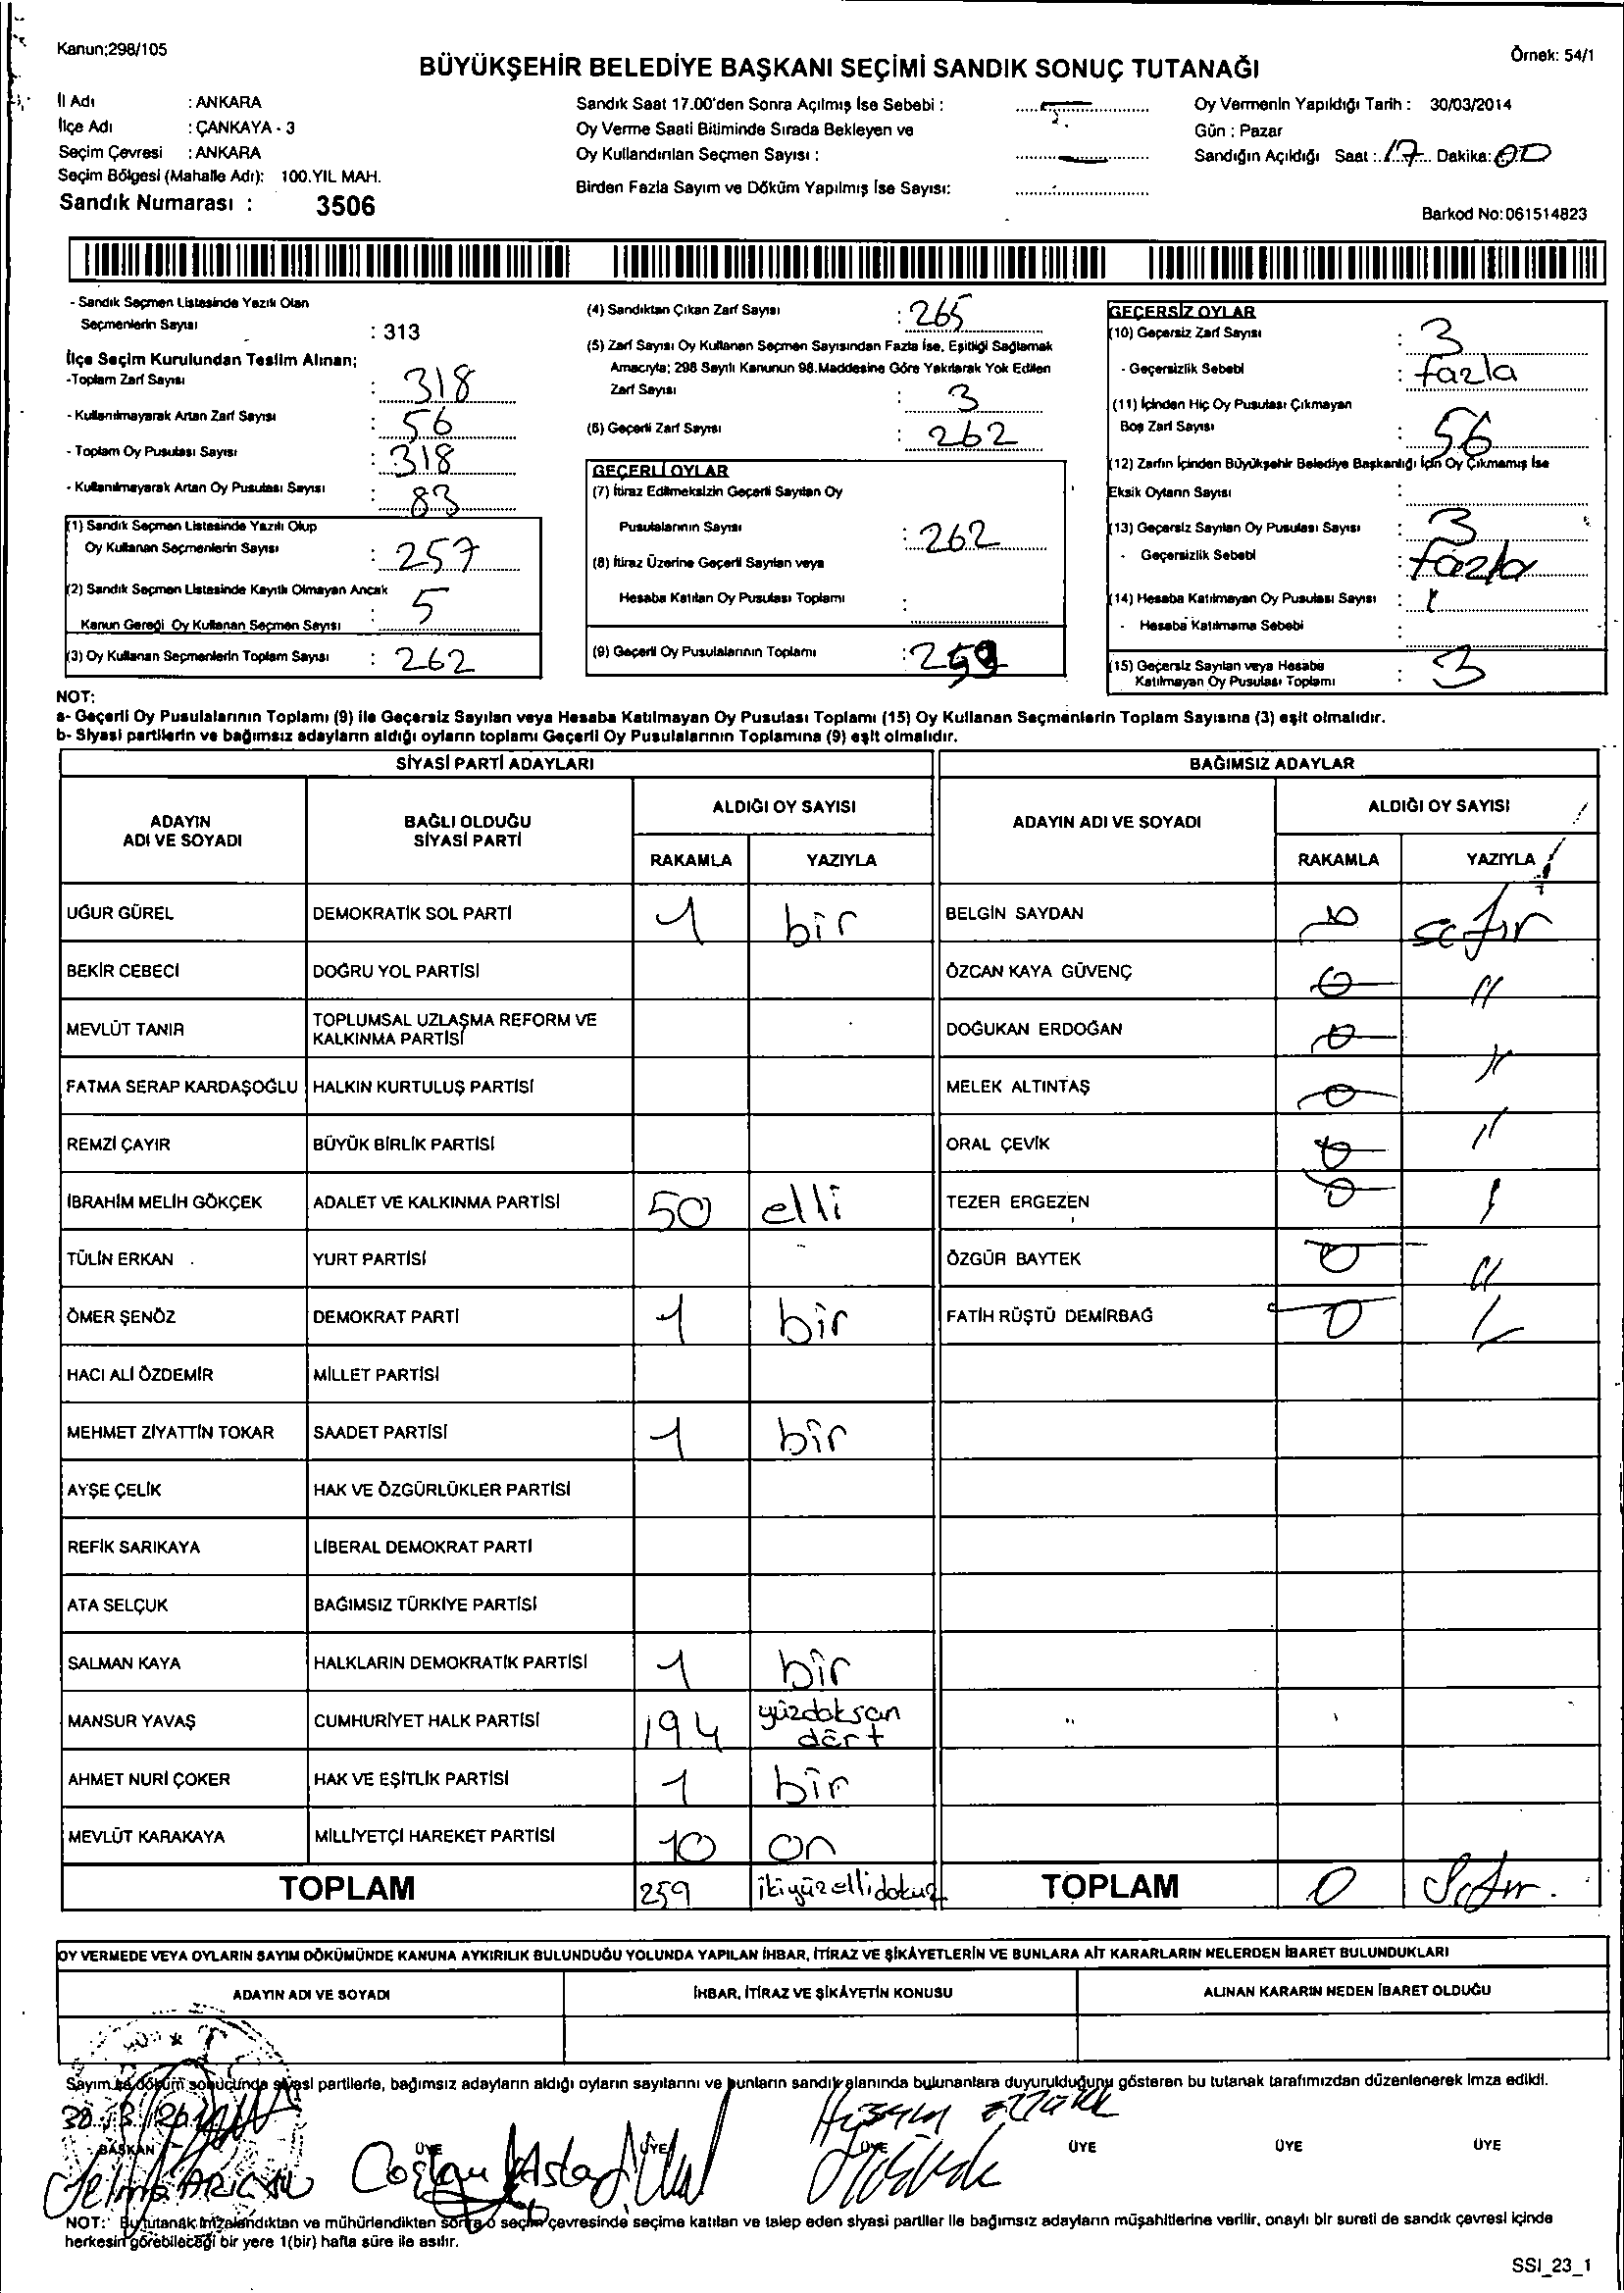 Kanun;298/105
Örnek: 54/1
BÜYÜKŞEHİR BELEDİYE BAŞKANI SEÇİMİ SANDIK SONUÇ TUTANAĞI
İl Adı : ANKARA
İlçe Adı : ÇANKAYA - 3
Seçim Çevresi : ANKARA
Seçim Bölgesi (Mahalle Adı): 100.YIL MAH.
Sandık Numarası : 3506
Sandık Saat 17.00'den Sonra Açılmış İse Sebebi :
Oy Verme Saati Bitiminde Sırada Bekleyen ve
Oy Kullandırılan Seçmen Sayısı :
Birden Fazla Sayım ve Döküm Yapılmış İse Sayısı:
Oy Vermenin Yapıldığı Tarih : 30/03/2014
Gün : Pazar
Sandığın Açıldığı Saat : 17 Dakika: 00
Barkod No:061514823
- Sandık Seçmen Listesinde Yazılı Olan
Seçmenlerin Sayısı : 313
İlçe Seçim Kurulundan Teslim Alınan;
-Toplam Zarf Sayısı : 318
- Kullanılmayarak Artan Zarf Sayısı : 56
- Toplam Oy Pusulası Sayısı : 318
- Kullanılmayarak Artan Oy Pusulası Sayısı : 83
(1) Sandık Seçmen Listesinde Yazılı Olup
Oy Kullanan Seçmenlerin Sayısı : 257
(2) Sandık Seçmen Listesinde Kayıtlı Olmayan Ancak
Kanun Gereği Oy Kullanan Seçmen Sayısı : 5
(3) Oy Kullanan Seçmenlerin Toplam Sayısı : 262
(4) Sandıktan Çıkan Zarf Sayısı : 265
(5) Zarf Sayısı Oy Kullanan Seçmen Sayısından Fazla İse, Eşitliği Sağlamak
Amacıyla; 298 Sayılı Kanunun 98.Maddesine Göre Yakılarak Yok Edilen
Zarf Sayısı : 3
(6) Geçerli Zarf Sayısı : 262
GEÇERLİ OYLAR
(7) İtiraz Edilmeksizin Geçerli Sayılan Oy
Pusulalarının Sayısı : 262
(8) İtiraz Üzerine Geçerli Sayılan veya
Hesaba Katılan Oy Pusulası Toplamı :
(9) Geçerli Oy Pusulalarının Toplamı : 259
GEÇERSİZ OYLAR
(10) Geçersiz Zarf Sayısı : 3
- Geçersizlik Sebebi : fazla
(11) İçinden Hiç Oy Pusulası Çıkmayan
Boş Zarf Sayısı : 56
(12) Zarfın İçinden Büyükşehir Belediye Başkanlığı İçin Oy Çıkmamış İse
Eksik Oyların Sayısı :
(13) Geçersiz Sayılan Oy Pusulası Sayısı : 3
- Geçersizlik Sebebi : fazla
(14) Hesaba Katılmayan Oy Pusulası Sayısı :
- Hesaba Katılmama Sebebi :
(15) Geçersiz Sayılan veya Hesaba
Katılmayan Oy Pusulası Toplamı : 3
NOT:
a- Geçerli Oy Pusulalarının Toplamı (9) ile Geçersiz Sayılan veya Hesaba Katılmayan Oy Pusulası Toplamı (15) Oy Kullanan Seçmenlerin Toplam Sayısına (3) eşit olmalıdır.
b- Siyasi partilerin ve bağımsız adayların aldığı oyların toplamı Geçerli Oy Pusulalarının Toplamına (9) eşit olmalıdır.
SİYASİ PARTİ ADAYLARI BAĞIMSIZ ADAYLAR
ADAYIN ADI VE SOYADI BAĞLI OLDUĞU SİYASİ PARTİ ALDIĞI OY SAYISI ADAYIN ADI VE SOYADI ALDIĞI OY SAYISI
RAKAMLA YAZIYLA RAKAMLA YAZIYLA
UĞUR GÜREL DEMOKRATİK SOL PARTİ 1 bir BELGİN SAYDAN 0 sıfır
BEKİR CEBECİ DOĞRU YOL PARTİSİ ÖZCAN KAYA GÜVENÇ 0 "
MEVLÜT TANIR TOPLUMSAL UZLAŞMA REFORM VE KALKINMA PARTİSİ DOĞUKAN ERDOĞAN 0 "
FATMA SERAP KARDAŞOĞLU HALKIN KURTULUŞ PARTİSİ MELEK ALTINTAŞ 0 "
REMZİ ÇAYIR BÜYÜK BİRLİK PARTİSİ ORAL ÇEVİK 0
İBRAHİM MELİH GÖKÇEK ADALET VE KALKINMA PARTİSİ 50 elli TEZER ERGEZEN 0
TÜLİN ERKAN YURT PARTİSİ ÖZGÜR BAYTEK 0 "
ÖMER ŞENÖZ DEMOKRAT PARTİ 1 bir FATİH RÜŞTÜ DEMİRBAĞ 0
HACI ALİ ÖZDEMİR MİLLET PARTİSİ
MEHMET ZİYATTİN TOKAR SAADET PARTİSİ 1 bir
AYŞE ÇELİK HAK VE ÖZGÜRLÜKLER PARTİSİ
REFİK SARIKAYA LİBERAL DEMOKRAT PARTİ
ATA SELÇUK BAĞIMSIZ TÜRKİYE PARTİSİ
SALMAN KAYA HALKLARIN DEMOKRATİK PARTİSİ 1 bir
MANSUR YAVAŞ CUMHURİYET HALK PARTİSİ 194 yüzdoksan dört
AHMET NURİ ÇOKER HAK VE EŞİTLİK PARTİSİ 1 bir
MEVLÜT KARAKAYA MİLLİYETÇİ HAREKET PARTİSİ 10 on
TOPLAM 259 ikiyüzellidokuz TOPLAM 0 Sıfır.
OY VERMEDE VEYA OYLARIN SAYIM DÖKÜMÜNDE KANUNA AYKIRILIK BULUNDUĞU YOLUNDA YAPILAN İHBAR, İTİRAZ VE ŞİKÂYETLERİN VE BUNLARA AİT KARARLARIN NELERDEN İBARET BULUNDUKLARI
ADAYIN ADI VE SOYADI İHBAR, İTİRAZ VE ŞİKÂYETİN KONUSU ALINAN KARARIN NEDEN İBARET OLDUĞU
Sayım ve döküm sonucunda siyasi partilerle, bağımsız adayların aldığı oyların sayılarını ve bunların sandık alanında bulunanlara duyurulduğunu gösteren bu tutanak tarafımızdan düzenlenerek imza edildi.
BAŞKAN ÜYE ÜYE ÜYE ÜYE ÜYE ÜYE
NOT: Bu tutanak imzalandıktan ve mühürlendikten sonra o seçim çevresinde seçime katılan ve talep eden siyasi partiler ile bağımsız adayların müşahitlerine verilir, onaylı bir sureti de sandık çevresi içinde
herkesin görebileceği bir yere 1(bir) hafta süre ile asılır.
SSI_23_1